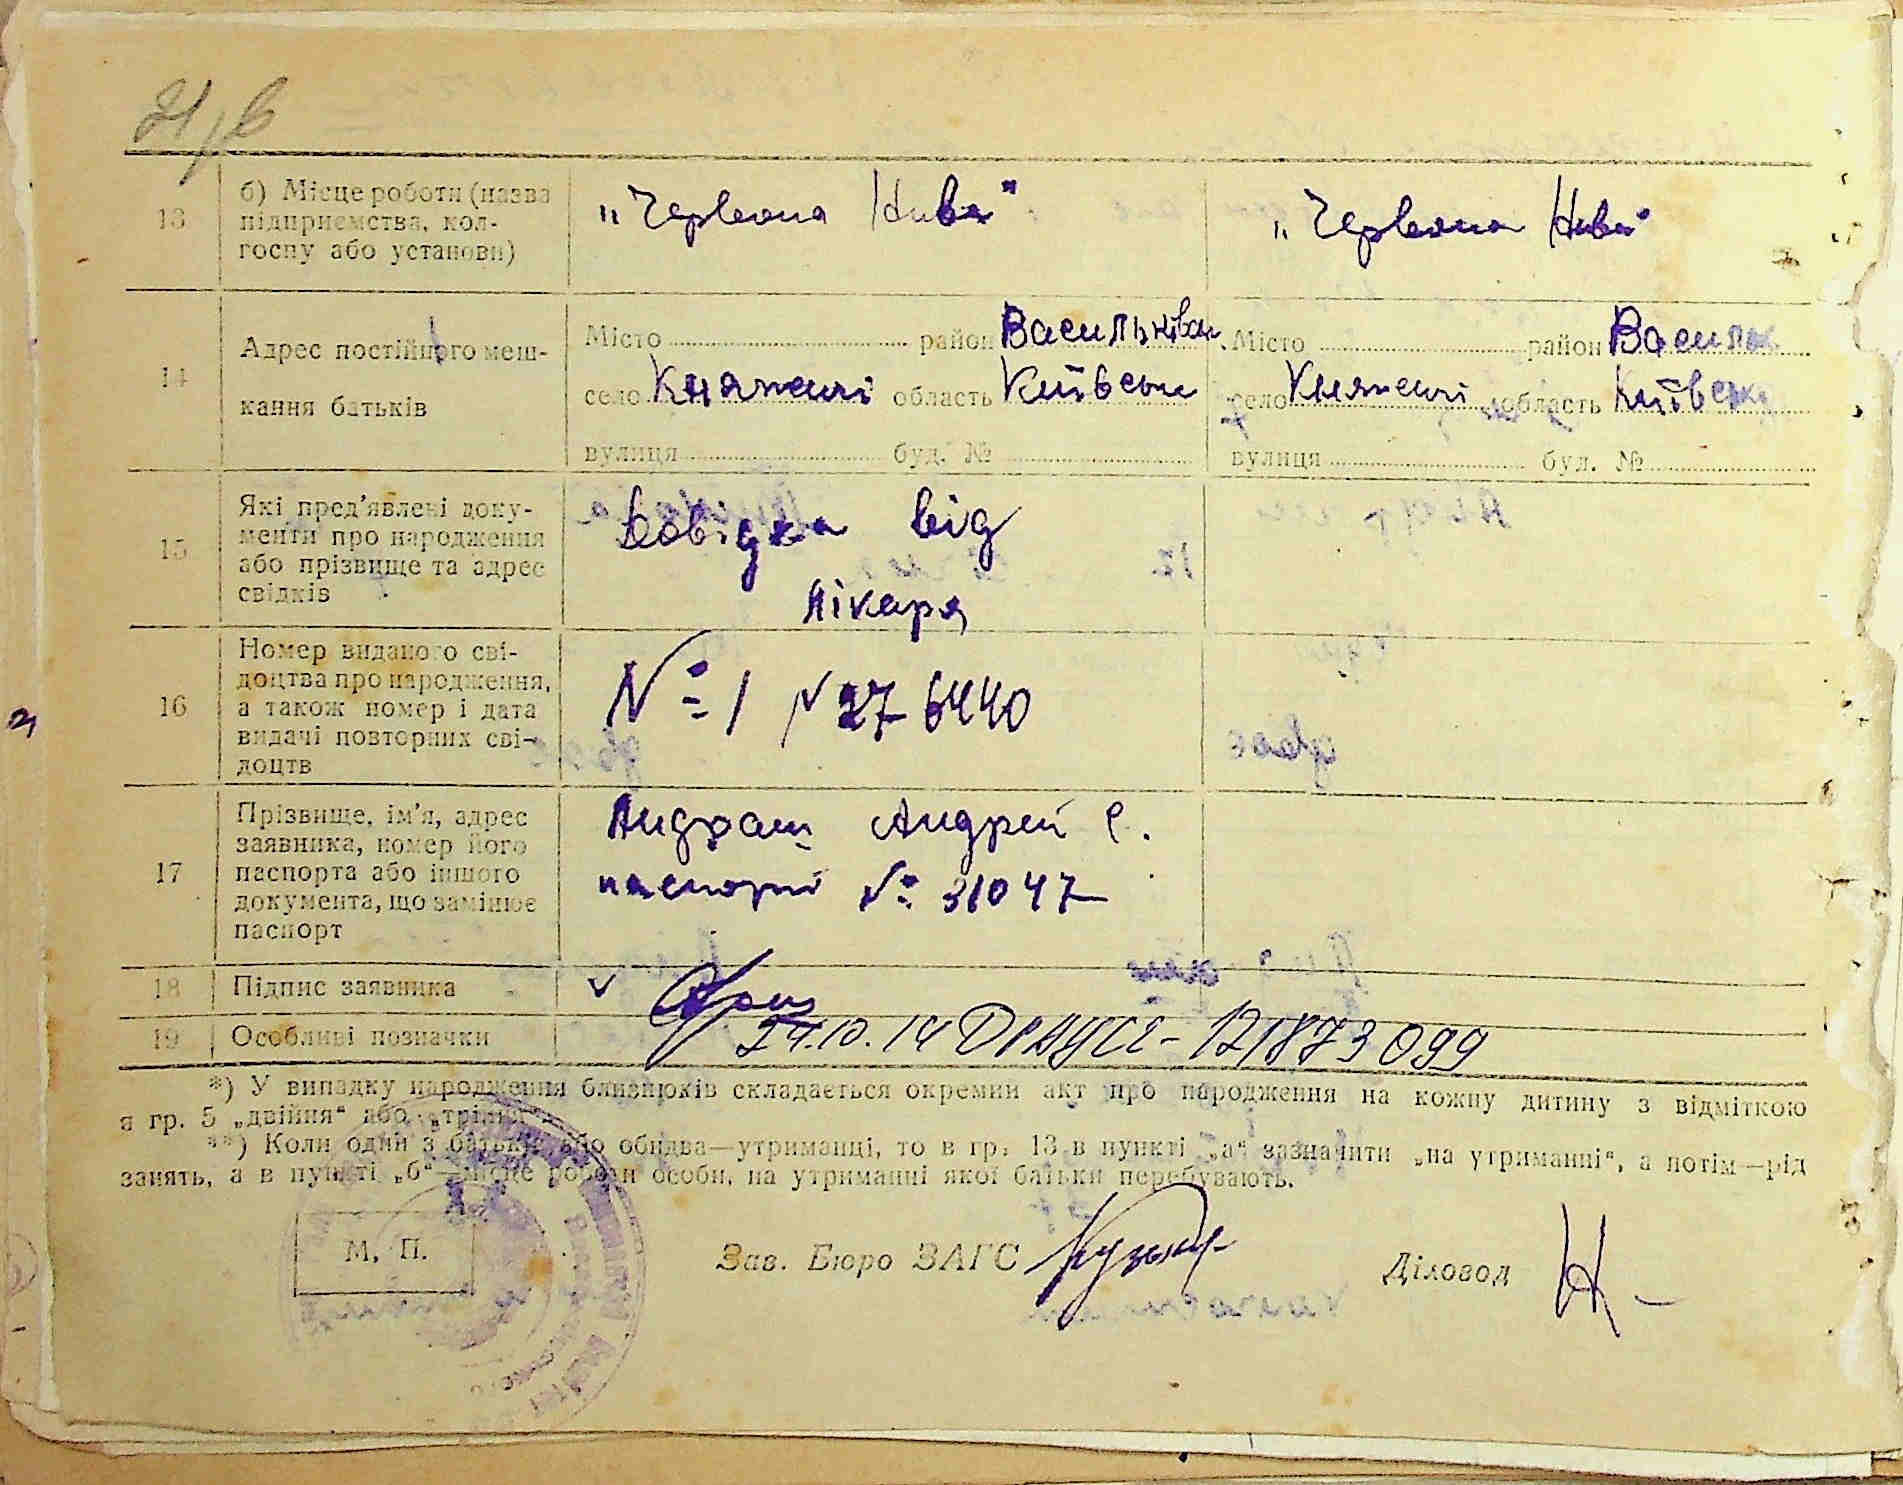 13
б) Місце роботи (назва
підприємства, кол-
госпу або установи)
„Червона Нива"
„Червона Нива"
14
Адрес постійного меш-
кання батьків
Місто район Васильків
село Княжичі область Київськ
вулиця буд. №
Місто район Васильк
село Княжичі область Київськ
вулиця буд. №
15
Які пред'явлені доку-
менти про народження
або прізвище та адрес
свідків
Довідка від
лікаря
16
Номер виданого сві-
доцтва про народження,
а також номер і дата
видачі повторних сві-
доцтв
№ 1 276440
17
Прізвище, ім'я, адрес
заявника, номер його
паспорта або іншого
документа, що замінює
паспорт
Андрощ Андрей С.
паспорт № 31047
18
Підпис заявника
19
Особливі позначки
24.10.14 ДРАЦСГ-121873099
*) У випадку народження близнюків складається окремий акт про народження на кожну дитину з відміткою
в гр. 5 „двійня" або „трійня".
**) Коли один з батьків або обидва—утриманці, то в гр. 13 в пункті „а" зазначити „на утриманні", а потім—рід
занять, а в пункті „б"—місце роботи особи, на утриманні якої батьки перебувають.
М. П.
Зав. Бюро ЗАГС
Діловод